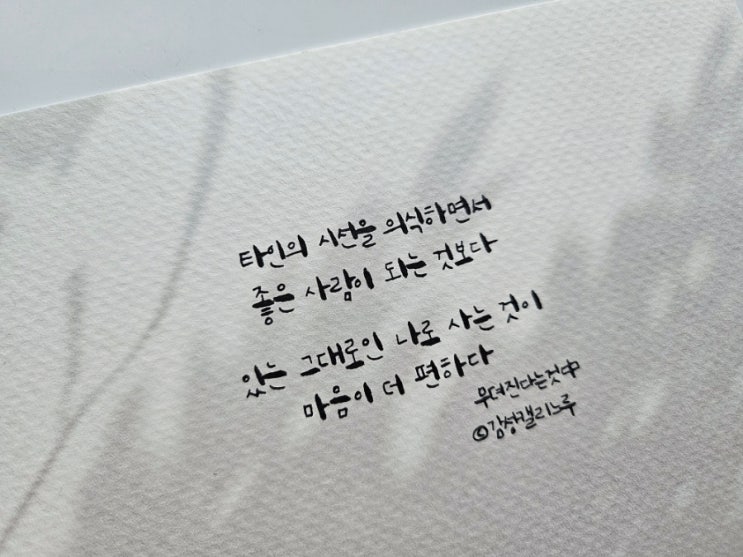 타인의 시선을 의식하면서
좋은 사람이 되는 것보다
있는 그대로인 나로 사는 것이
마음이 더 편하다
무뎌진다는것中
©감성캘리노루